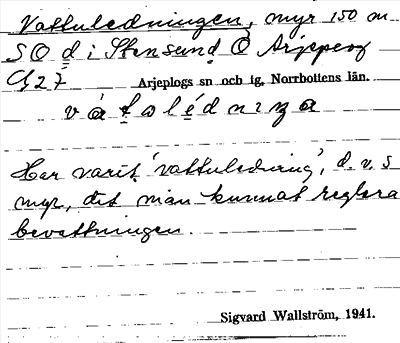 Vattuledningen, myr 150 m
SO d i Stensund Ö Arjeplog
Cf 27 Arjeplogs sn och tg, Norrbottens län.
Har varit 'vattuledning', d.v.s
myr, det man kunnat reglera
bevattningen.
Sigvard Wallström, 1941.